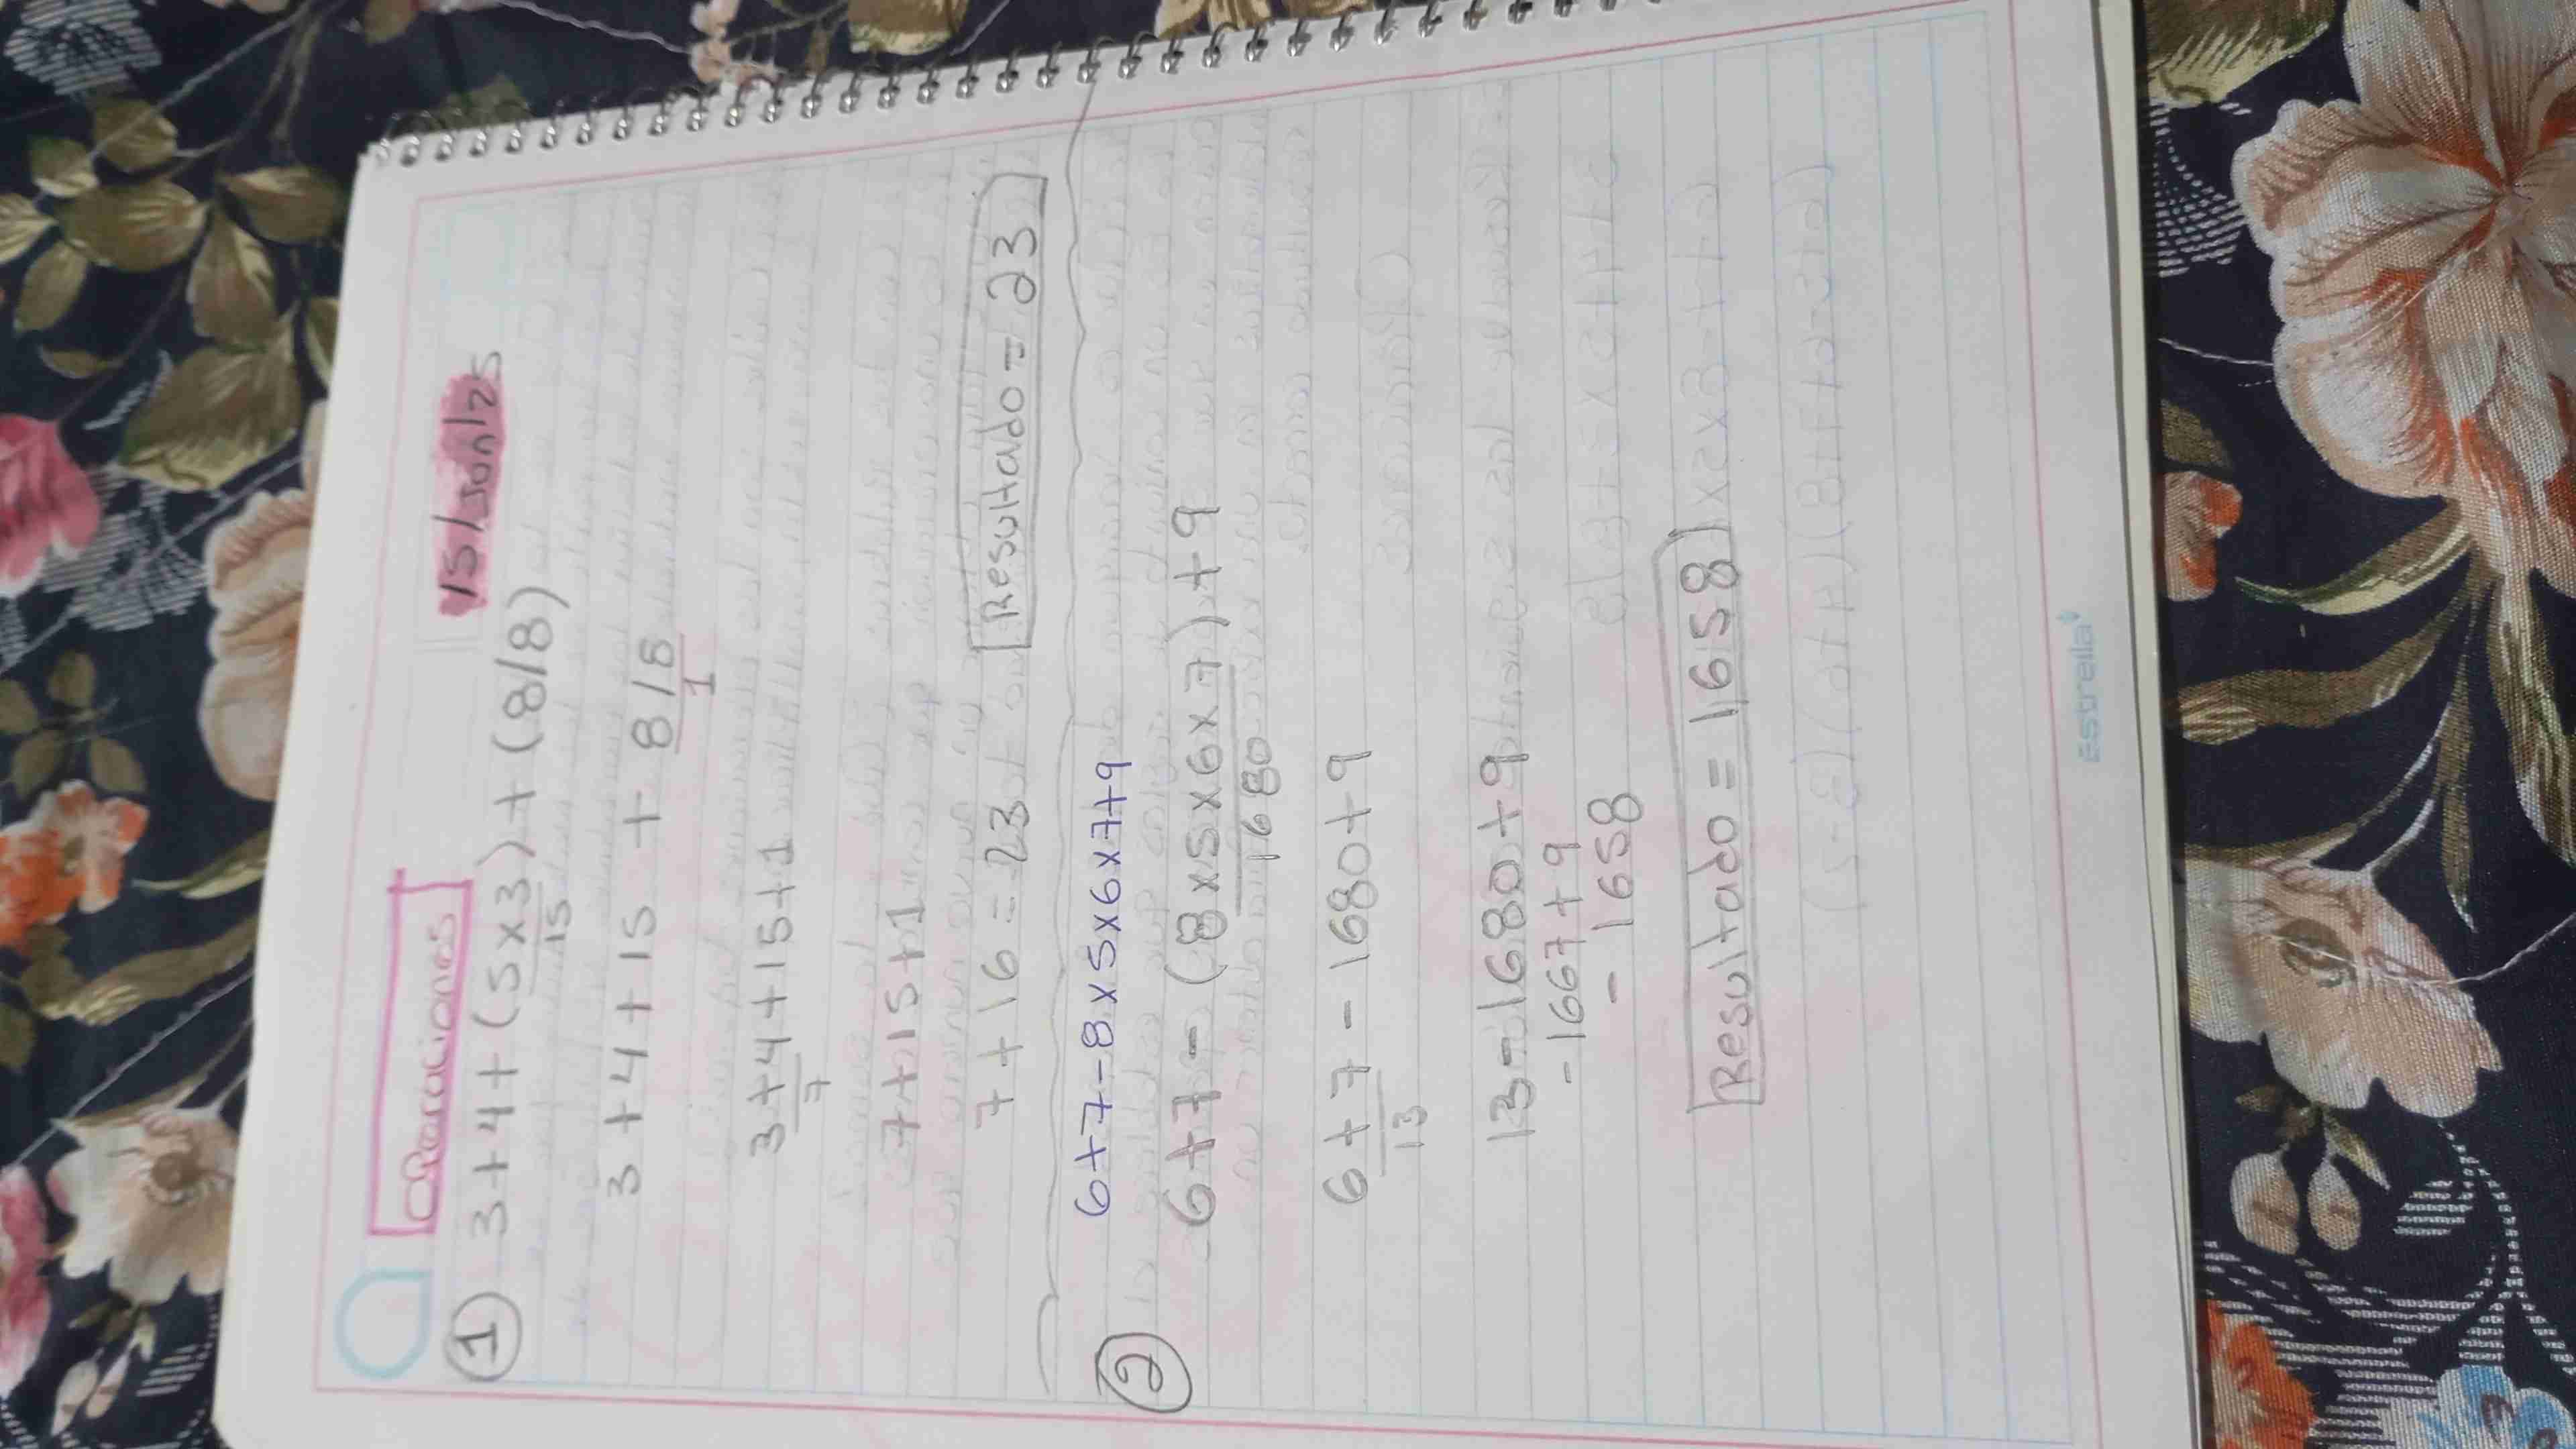 Operaciones 15/Jun/25
1 3+4+(5x3)+(8/8)
15
3+4+15 + 8/8
1
3+4+15+1
7
7+15+1
7+16=23
Resultado=23
6+7-8x5x6x7+9
2 6+7-(8x5x6x7)+9
1680
6+7-1680+9
13
13-1680+9
-1667+9
-1658
Resultado=1658
Estrella